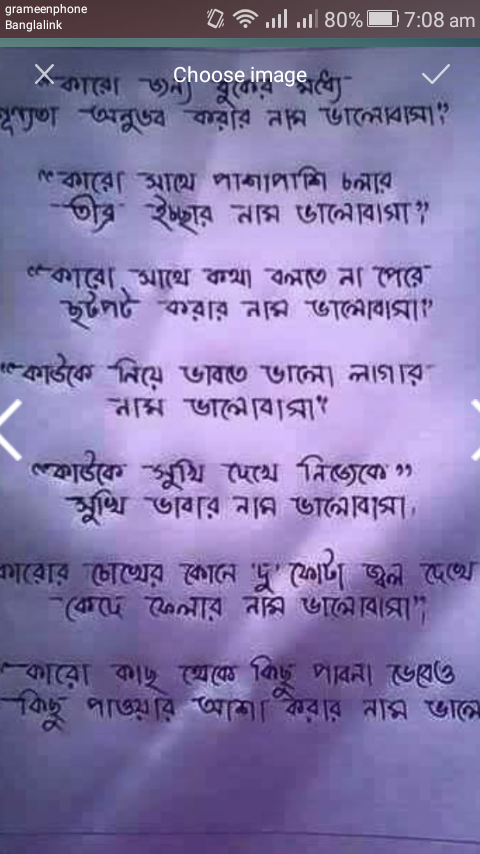 grameenphone
Banglalink
80% 7:08 am
Choose image
“কারো জন্য বুকের মধ্যে
শূণ্যতা অনুভব করার নাম ভালোবাসা”
“কারো সাথে পাশাপাশি চলার
তীব্র ইচ্ছার নাম ভালোবাসা”
“কারো সাথে কথা বলতে না পেরে
ছটপট করার নাম ভালোবাসা”
“কাউকে নিয়ে ভাবতে ভালো লাগার
নাম ভালোবাসা”
“কাউকে সুখি দেখে নিজেকে”
সুখি ভাবার নাম ভালোবাসা,
কারোর চোখের কোনে 'দু' ফোটা জ্বল দেখে
কেদে ফেলার নাম ভালোবাসা”,
কারো কাছ থেকে কিছু পাবনা ভেবেও
কিছু পাওয়ার আশা করার নাম ভালো